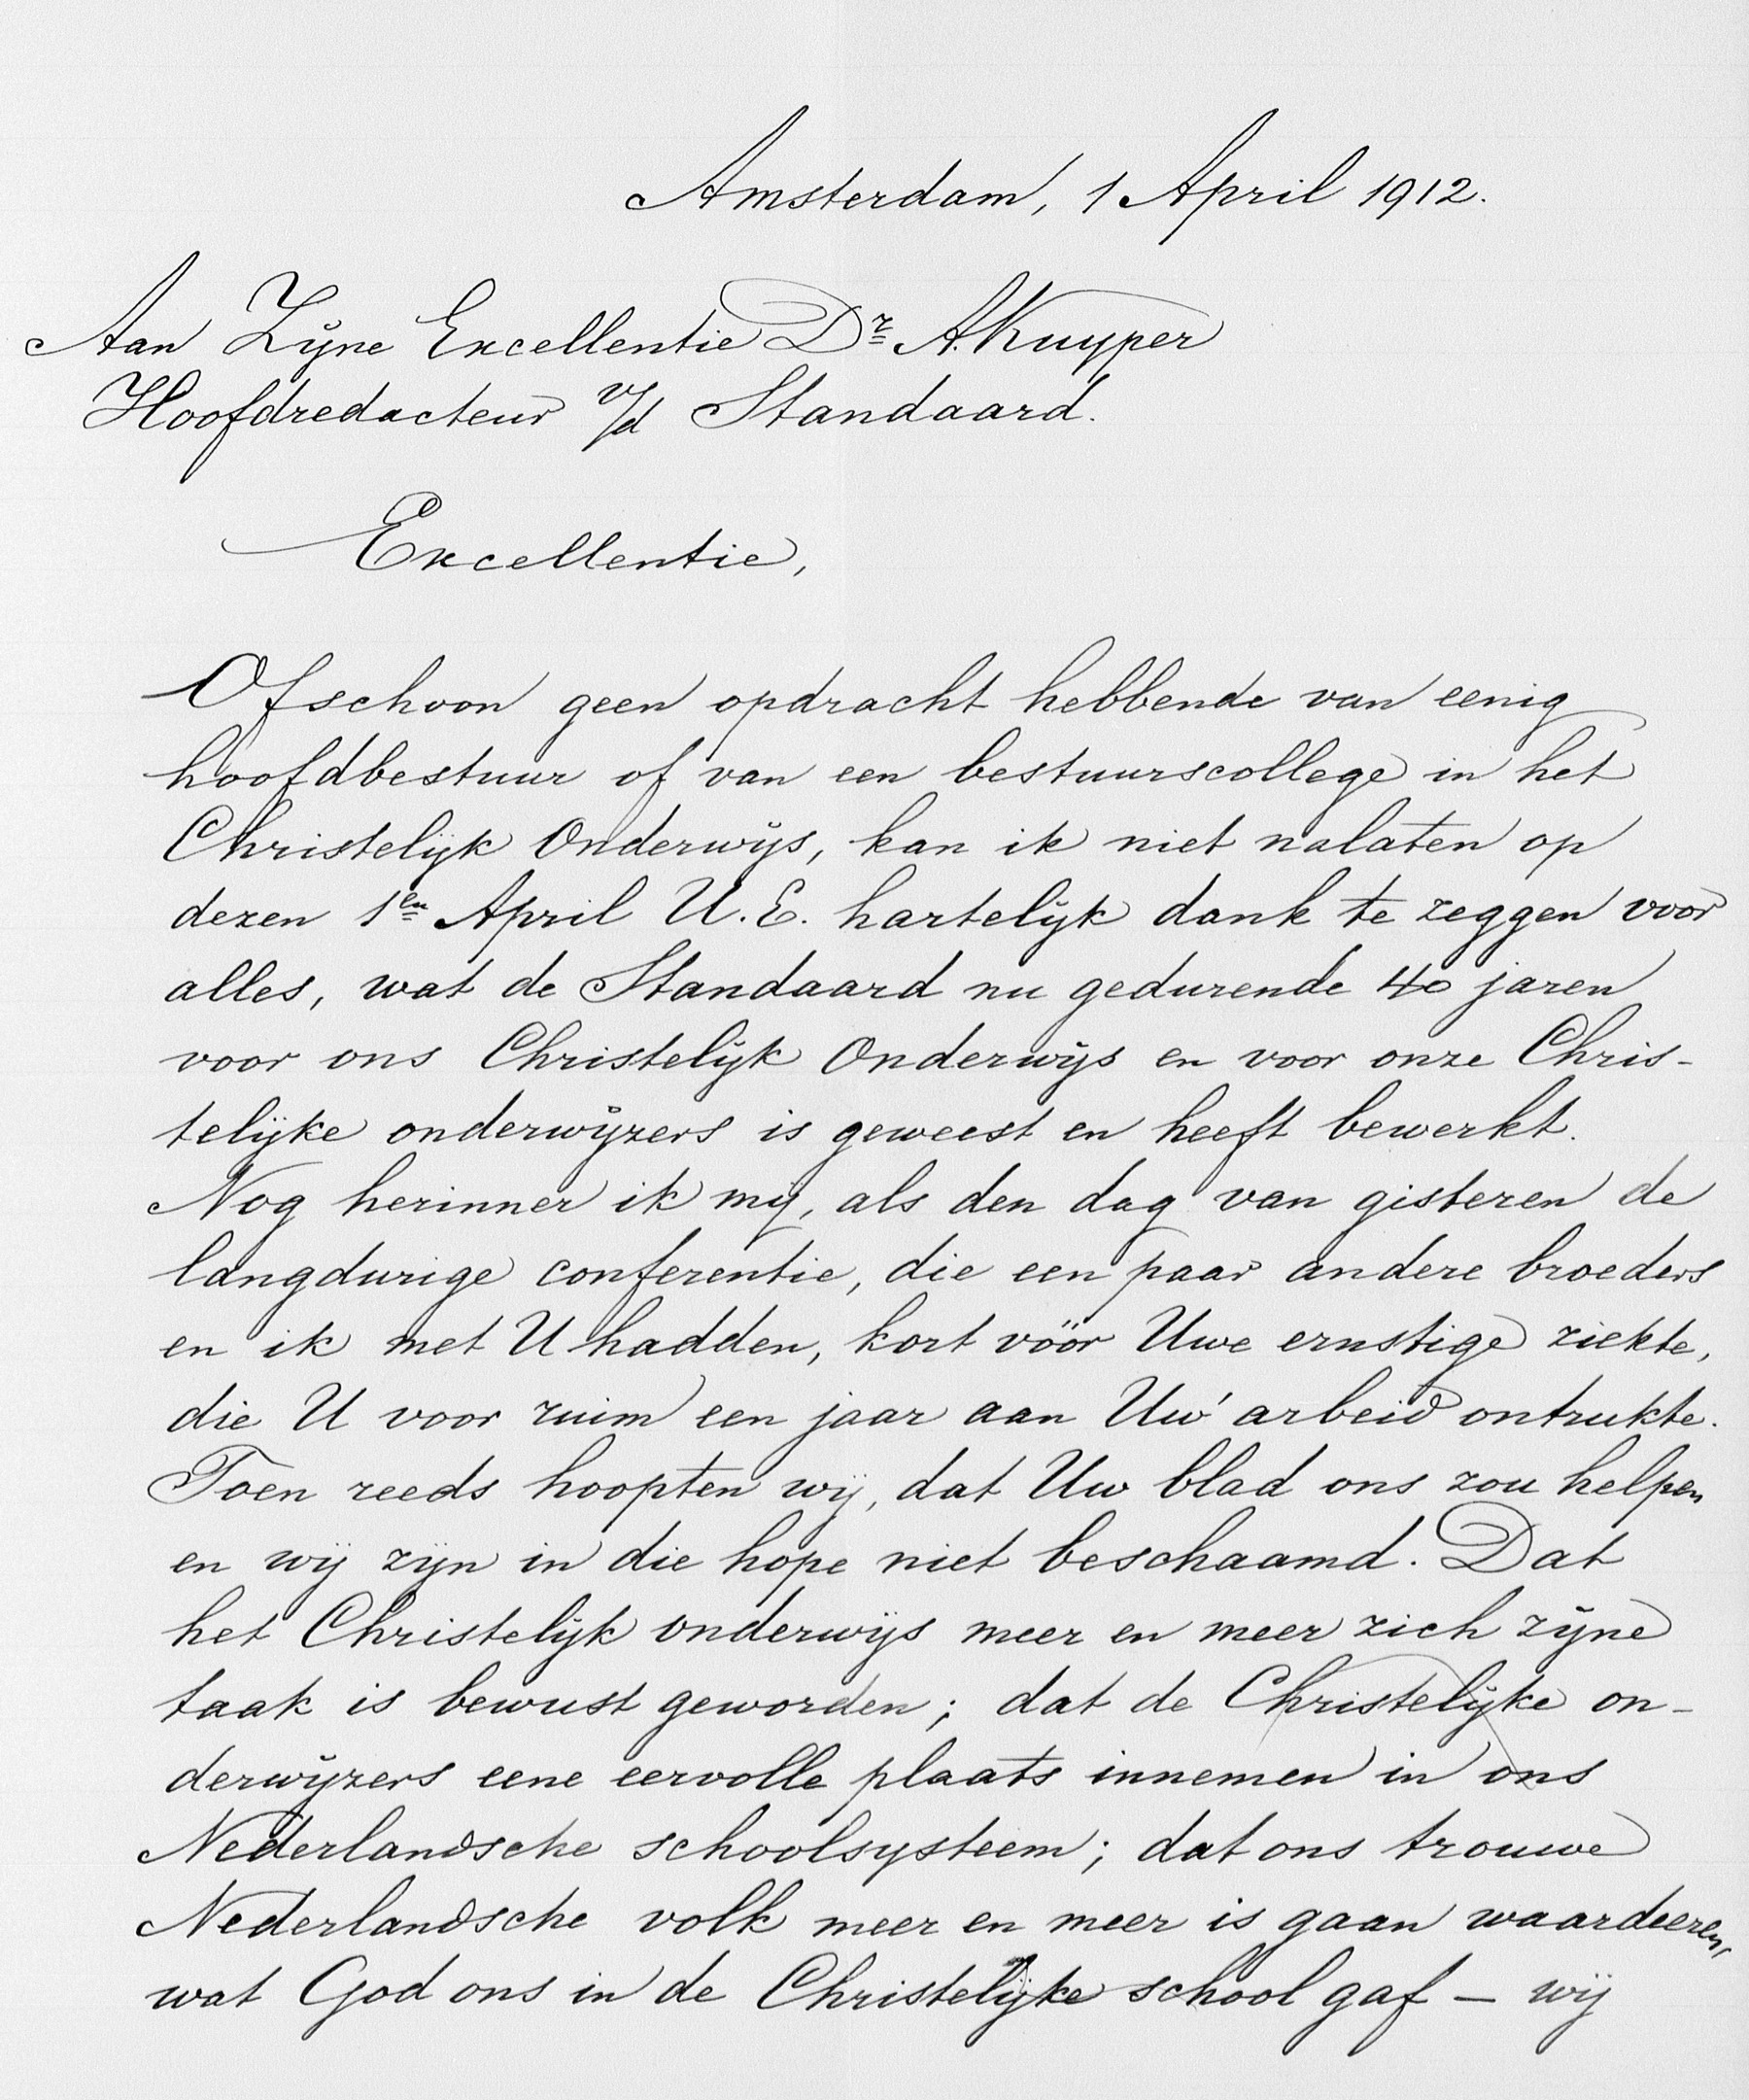 Amsterdam, 1 April 1912.
Aan Zijne Excellentie Dr A. Kuyper
Hoofdredacteur v/d Standaard.
Excellentie,
Ofschoon geen opdracht hebbende van eenig
hoofdbestuur of van een bestuurscollege in het
Christelijk Onderwijs, kan ik niet nalaten op
dezen 1en April U. E. hartelijk dank te zeggen voor
alles, wat de Standaard nu gedurende 40 jaren
voor ons Christelijk Onderwijs en voor onze Chris-
telijke onderwijzers is geweest en heeft bewerkt.
Nog herinner ik mij, als den dag van gisteren de
langdurige conferentie, die een paar andere broeders
en ik met U hadden, kort vóór Uwe ernstige ziekte,
die U voor ruim een jaar aan Uw' arbeid ontrukte.
Toen reeds hoopten wij, dat Uw blad ons zou helpen
en wij zijn in die hope niet beschaamd. Dat
het Christelijk onderwijs meer en meer zich zijne
taak is bewust geworden; dat de Christelijke on-
derwijzers eene eervolle plaats innemen in ons
Nederlandsche schoolsysteem; dat ons trouwe
Nederlandsche volk meer en meer is gaan waardeeren,
wat God ons in de Christelijke school gaf — wij